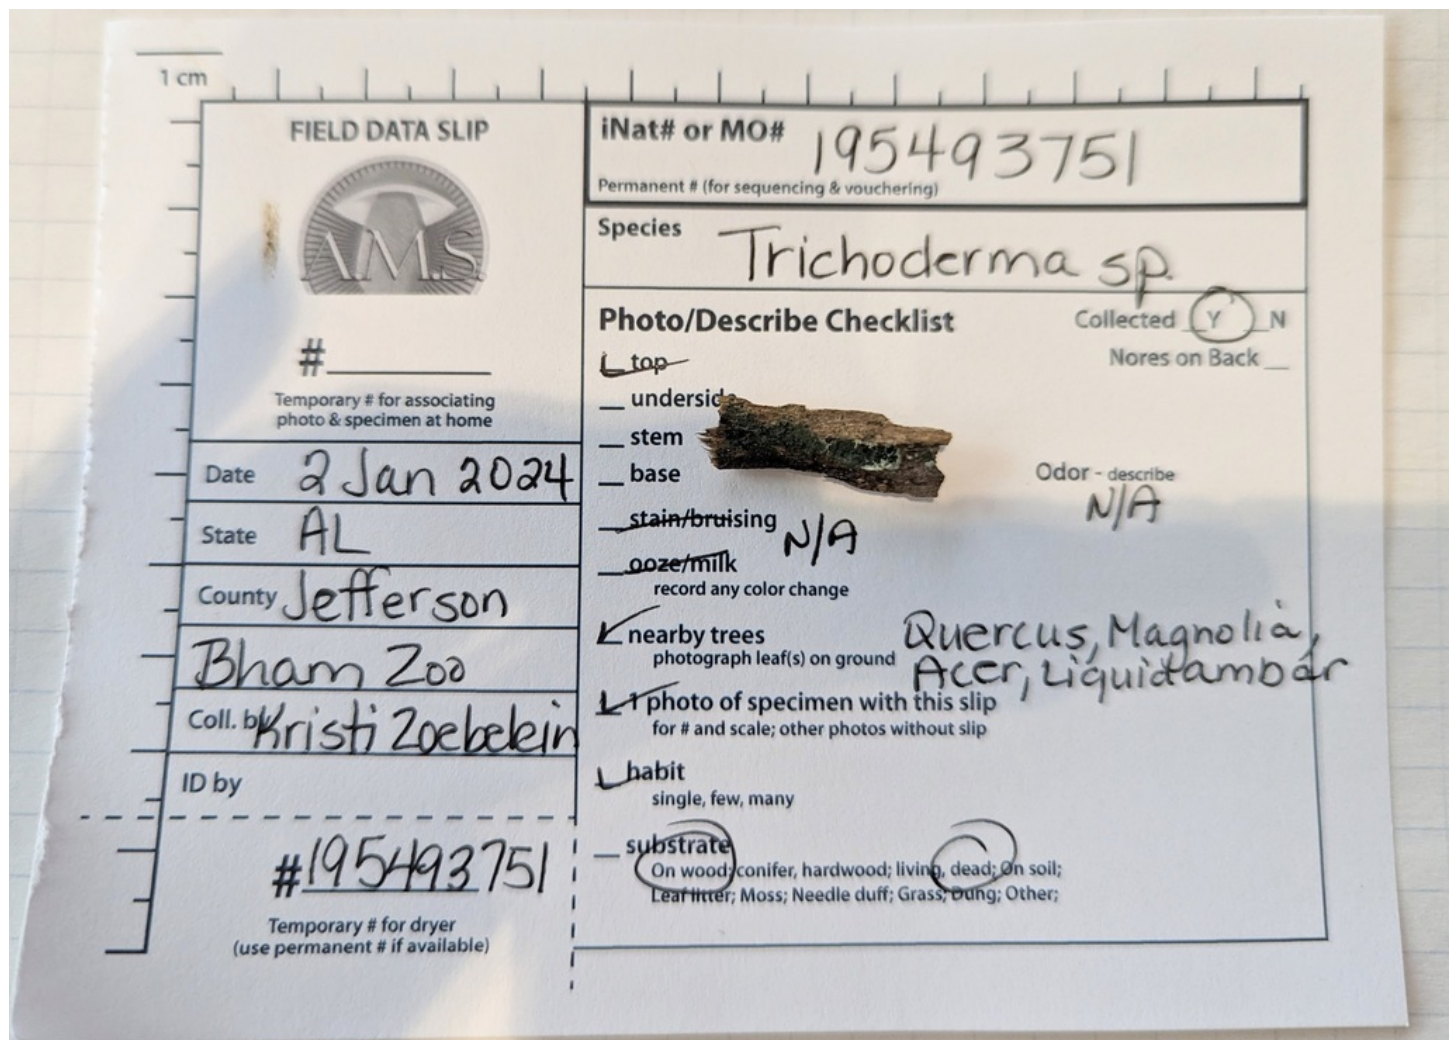 1 cm
FIELD DATA SLIP
A.M.S.
#
Temporary # for associating
photo & specimen at home
Date 2 Jan 2024
State AL
County Jefferson
Bham Zoo
Coll. by Kristi Zoebelein
ID by
#195493751
Temporary # for dryer
(use permanent # if available)
iNat# or MO# 195493751
Permanent # (for sequencing & vouchering)
Species Trichoderma sp.
Photo/Describe Checklist
Collected Y N
Nores on Back
top
underside
stem
base
Odor - describe
N/A
stain/bruising N/A
ooze/milk
record any color change
nearby trees Quercus, Magnolia,
photograph leaf(s) on ground Acer, Liquidambar
1 photo of specimen with this slip
for # and scale; other photos without slip
habit
single, few, many
substrate
On wood; conifer, hardwood; living, dead; On soil;
Leaf litter; Moss; Needle duff; Grass; Dung; Other;